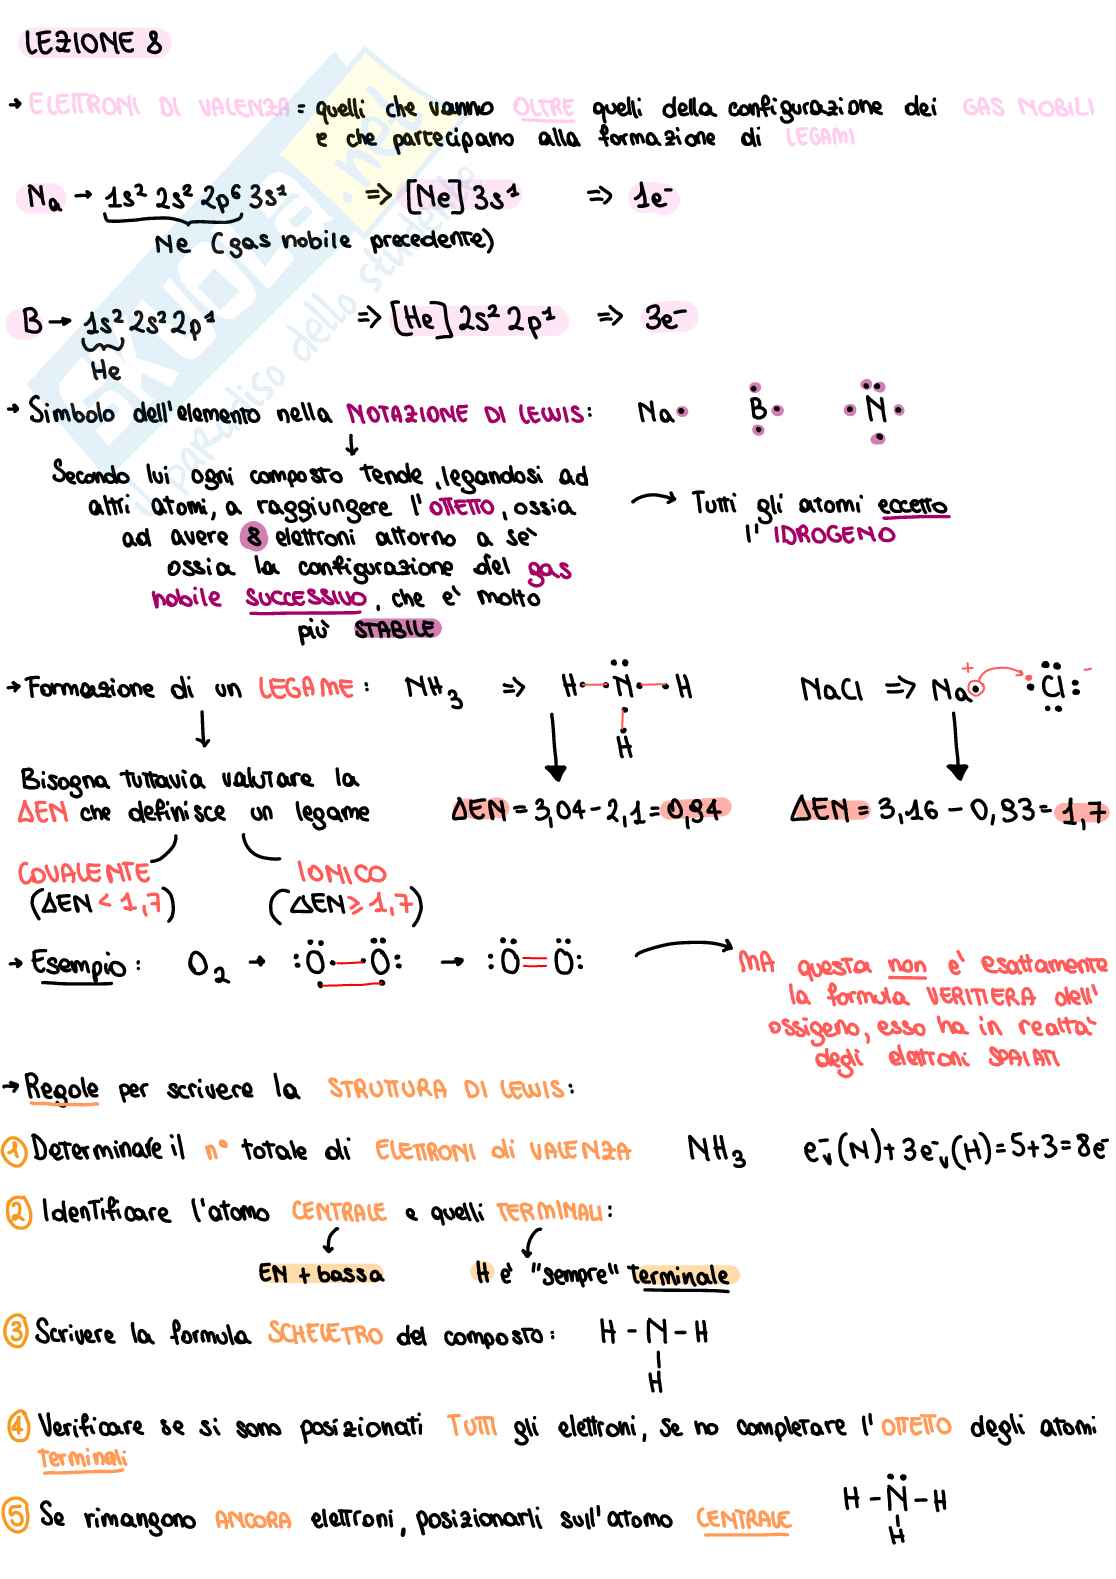 LEZIONE 8
→ ELETTRONI DI VALENZA = quelli che vanno OLTRE quelli della configurazione dei GAS NOBILI
e che partecipano alla formazione di LEGAMI
Na → 1s² 2s² 2p⁶ 3s¹ => [Ne] 3s¹ => 1e⁻
Ne (gas nobile precedente)
B → 1s² 2s² 2p¹ => [He] 2s² 2p¹ => 3e⁻
He
→ Simbolo dell'elemento nella NOTAZIONE DI LEWIS: Na B N
Secondo lui ogni composto tende, legandosi ad
altri atomi, a raggiungere l'OTTETTO, ossia
ad avere 8 elettroni attorno a sè
ossia la configurazione del gas
nobile SUCCESSIVO, che è molto
più STABILE
→ Tutti gli atomi eccetto
l'IDROGENO
→ Formazione di un LEGAME: NH₃ => H N H NaCl => Na⁺ Cl⁻
H
Bisogna tuttavia valutare la
ΔEN che definisce un legame
ΔEN = 3,04 - 2,1 = 0,94 ΔEN = 3,16 - 0,93 = 1,7
COVALENTE IONICO
(ΔEN < 1,7) (ΔEN ⩾ 1,7)
→ Esempio: O₂ → :Ö - Ö: → :Ö = Ö:
MA questa non è esattamente
la formula VERITIERA dell'
ossigeno, esso ha in realtà
degli elettroni SPAIATI
→ Regole per scrivere la STRUTTURA DI LEWIS:
1 Determinare il n° totale di ELETTRONI di VALENZA NH₃ e⁻ᵥ(N) + 3e⁻ᵥ(H) = 5+3 = 8e⁻
2 Identificare l'atomo CENTRALE e quelli TERMINALI:
EN + bassa H è "sempre" terminale
3 Scrivere la formula SCHELETRO del composto: H - N - H
H
4 Verificare se si sono posizionati TUTTI gli elettroni, se no completare l'OTTETTO degli atomi
terminali
5 Se rimangono ANCORA elettroni, posizionarli sull'atomo CENTRALE H - N̈ - H
H
SKUOLA.net
il paradiso dello studente